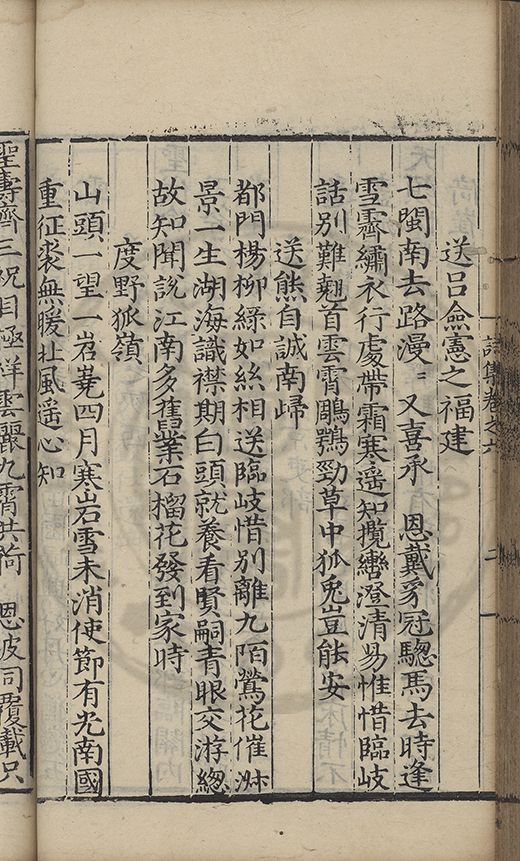 詩集卷之六 二
送呂僉憲之福建
七閩南去路漫〻又喜承 恩戴豸冠驄馬去時逢
雪霽繡衣行處帶霜寒遥知攬轡澄清易惟惜臨岐
話別難翹首雲霄鵰鶚勁草中狐兔豈能安
送熊自誠南歸
都門楊柳綠如絲相送臨岐惜別離九陌鶯花催淑
景一生湖海識襟期白頭就養看賢嗣青眼交游緫
故知聞說江南多舊業石榴花發到家時
度野狐嶺
山頭一望一岧嶤四月寒岩雪未消使節有光南國
重征裘無暖北風遥心知
聖壽齊三祝目極祥雲麗九霄共荷 恩波同覆載只